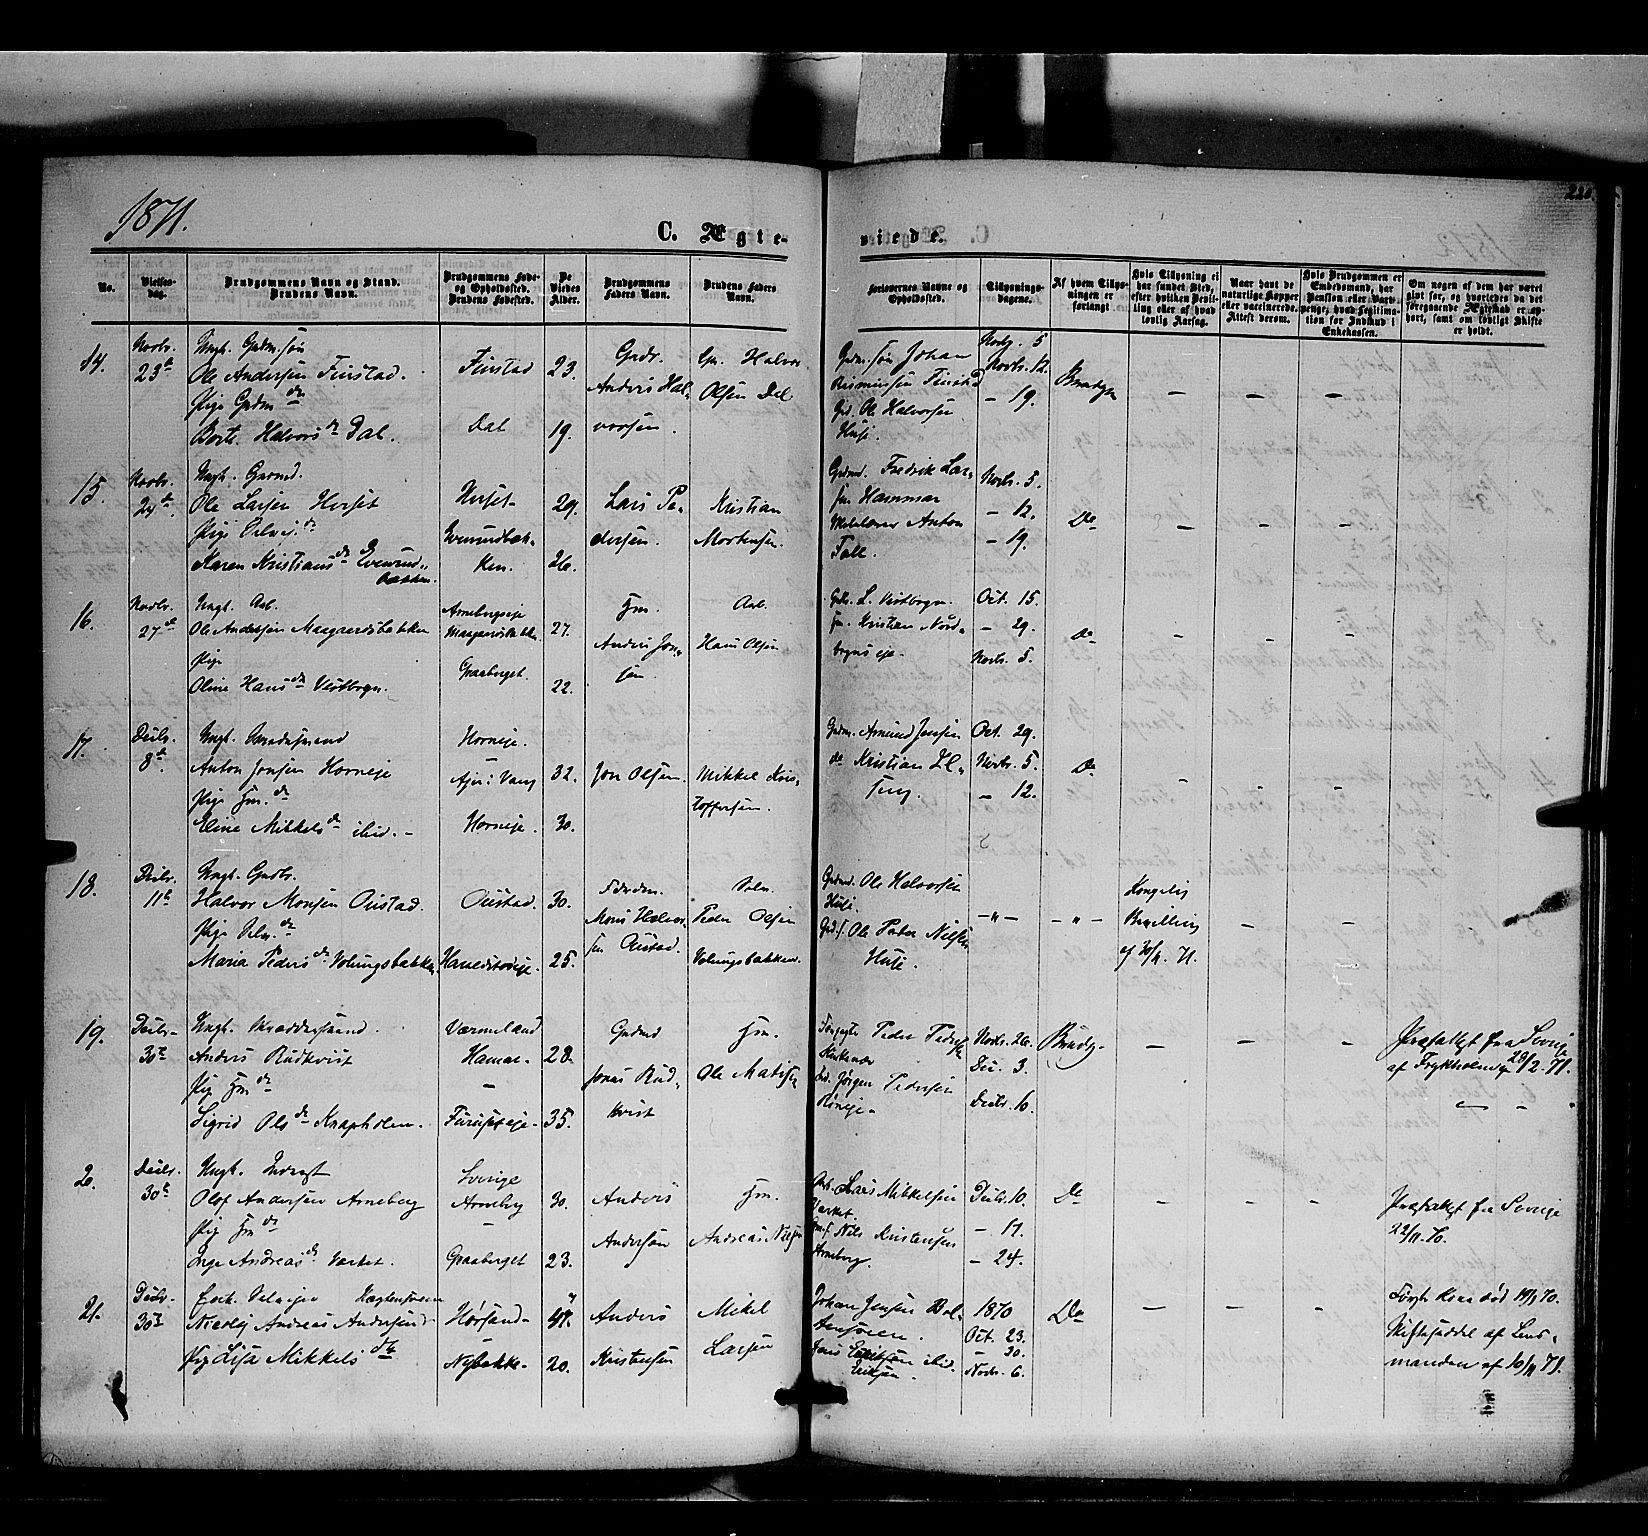 1871.
220
C. Ægte-
viede.
No.
Vielses-
dag.
Brudgommens Navn og Stand.
Brudens Navn.
Brudgommens Føde-
og Opholdssted.
Brudens Fødested.
De
Viedes
Alder.
Brudgommens
Faders Navn.
Brudens Faders
Navn.
Forlovernes Navne og
Opholdssted.
Tillysnings-
dagene.
Af hvem Tillys-
ningen er
forlangt
Hvis Tillysning ei
har fundet Sted,
efter hvilken Bevil-
ling eller af hvad
lovlig Aarsag.
Naar havt de
naturlige Kopper
eller vaccinerede.
Attest derom.
Hvis Brudgommen er
Embedsmand, har
Pension eller Vart-
penge, hvad Legitima-
tion for Indskud i
Enkekassen.
Om nogen af dem har været
gift før, og hvorledes da det
foregaaende Ægteskab er op-
hørt, samt om lovligt Skifte
er holdt.
14.
Novbr.
23d
Ungk. Gaardm. søn
Ole Andersen Finstad.
Pige Gaardm dr
Berte Halvorsdr Dal.
Finstad
Dal
23.
19.
Gaardbr.
Anders Hal-
vorsen.
Gm. Halvor
Olsen Dal
Gaardm. søn Johan
Rasmussen Finstad
Gbr. Ole Halvorsen
Huse.
Novbr. 5
Novbr. 12.
— 19.
Brudgom
15.
Novbr.
24d.
Ungk. Gaardmd.
Ole Larsen Hovset
Pige Selvej. dr
Karen Kristiansdr Evenrud-
bakken.
Hovset
Evenrudbak-
ken.
29.
26.
Lars Pe-
dersen.
Kristian
Mortensen.
Gaardmd. Fredrik Lar-
sen Hammar
Anton
Novbr. 5.
— 12.
— 19.
Do
16.
Novbr.
27d
Ungk. Arb.
Ole Andersen Maegaardsbakken
Pige
Oline Hansdr Vestbregn.
Arnebergseje
Graaberget.
27.
22.
Hm.
Anders Jon-
sen
Arb.
Hans Olsen
Gbr. L. Vestbregn.
Hm. Kristian Nord-
bregns eje.
Oct. 15.
— 29.
Novbr. 5.
Do
17.
Decbr.
8d.
Ungk.
Anton Jonsen Horneje
Pige Hm. dr
Eline Mikkelsdr ibid. —
Horneje.
Ajer i Vang
Horneje.
32.
30.
Jon Olsen.
Mikkel Kris-
toffersen.
Gaardm. Amund Jensen
do Kristian El-
Oct. 29.
Novbr. 5.
— 12.
Do
18.
Decbr.
11d
Ungk. Gaardbr.
Halvor Monsen Oustad.
Pige Selv. dr
Maria Pedersdr Volungsbakken
Oustad.
30.
25.
Mons Halvor-
sen Oustad.
Selv.
Peder Olsen
Volungsbakken.
Gaardmd. Ole Halvorsen
Huse
Gbr. f. Ole Peter Nilsen
Huse.
— " —
— " —
Kongelig
Bevilling
af 20/11. 71.
19.
Decbr.
30te
Ungk. Skræddersvend.
Anders Rudkvist
Pige Hm dr
Sigrid Olsdr Knapholen.
Værmeland
Hamar
Furusetseje
28.
35.
Gaardmd
Jonas Rud-
kvist
Hm.
Ole Matisen
Forgagter Peder Peders.
Jørgen Pedersen
Novbr. 26.
Dec. 3.
Decbr. 10.
Brudg.
Præstattest fra Sverige
af Frykholen 28/2. 71.
20.
Decbr.
30te
Ungk. Inderst
Olof Andersen Arneberg
Pige Hm dr
Inge Andreasdr Varket.
Sverige
Arneberg
Graaberget
30.
23.
Anders
Andersen
Hm.
Andreas Nilsen
Lars Mikkelsen
Varket.
Nils Kristensen
Arneberg.
Decbr. 10.
— 17.
— 24.
Do
Præstattest fra Sverige
22/11. 70.
21.
Decbr.
30te
Enk. Selvejer
Nicolaj Andreas Andersen
Pige Lisa Mikkelsdtr
Hørsand
Nybakke
47.
20.
Anders
Kristensen
Mikel
Larsen
Johan Jensen Bol-
Jens Eriksen ibid.
Eriksen.
1870
Oct. 23.
— 30.
Novbr. 6.
Do
Forrige Kone død 19/3 70.
Skifteseddel af Lens-
manden af 10/11 71.